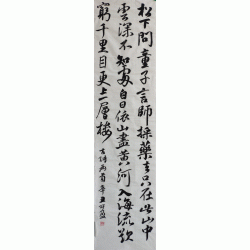 松下問童子言師採藥去只在此山中
雲深不知處白日依山盡黄河入海流欲
窮千里目更上一層樓
古詩两首辛丑